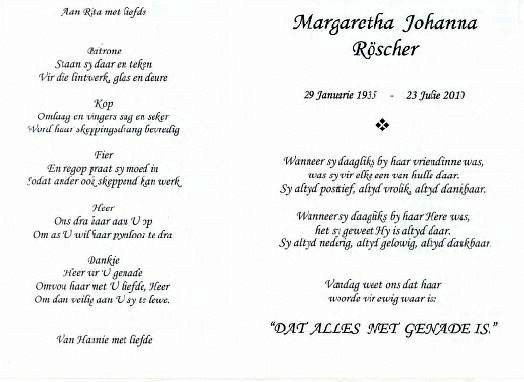 Aan Rita met liefde
Patrone
Staan sy daar en teken
Vir die lintwerk, glas en deure
Kop
Omlaag en vingers sag en seker
Word haar skeppingsdrang bevredig
Fier
En regop praat sy moed in
Sodat ander ook skeppend kan werk
Heer
Ons dra haar aan U op
Om as U wil haar pynloos te dra
Dankie
Heer vir U genade
Omvou haar met U liefde, Heer
Om dan veilig aan U sy te lewe.
Van Hannie met liefde
Margaretha Johanna
Röscher
29 Januarie 1935 - 23 Julie 2010
Wanneer sy daagliks by haar vriendinne was,
was sy vir elke een van hulle daar.
Sy altyd positief, altyd vrolik, altyd dankbaar.
Wanneer sy daagliks by haar Here was,
het sy geweet Hy is altyd daar.
Sy altyd nederig, altyd gelowig, altyd dankbaar.
Vandag weet ons dat haar
woorde vir ewig waar is:
"DAT ALLES NET GENADE IS."